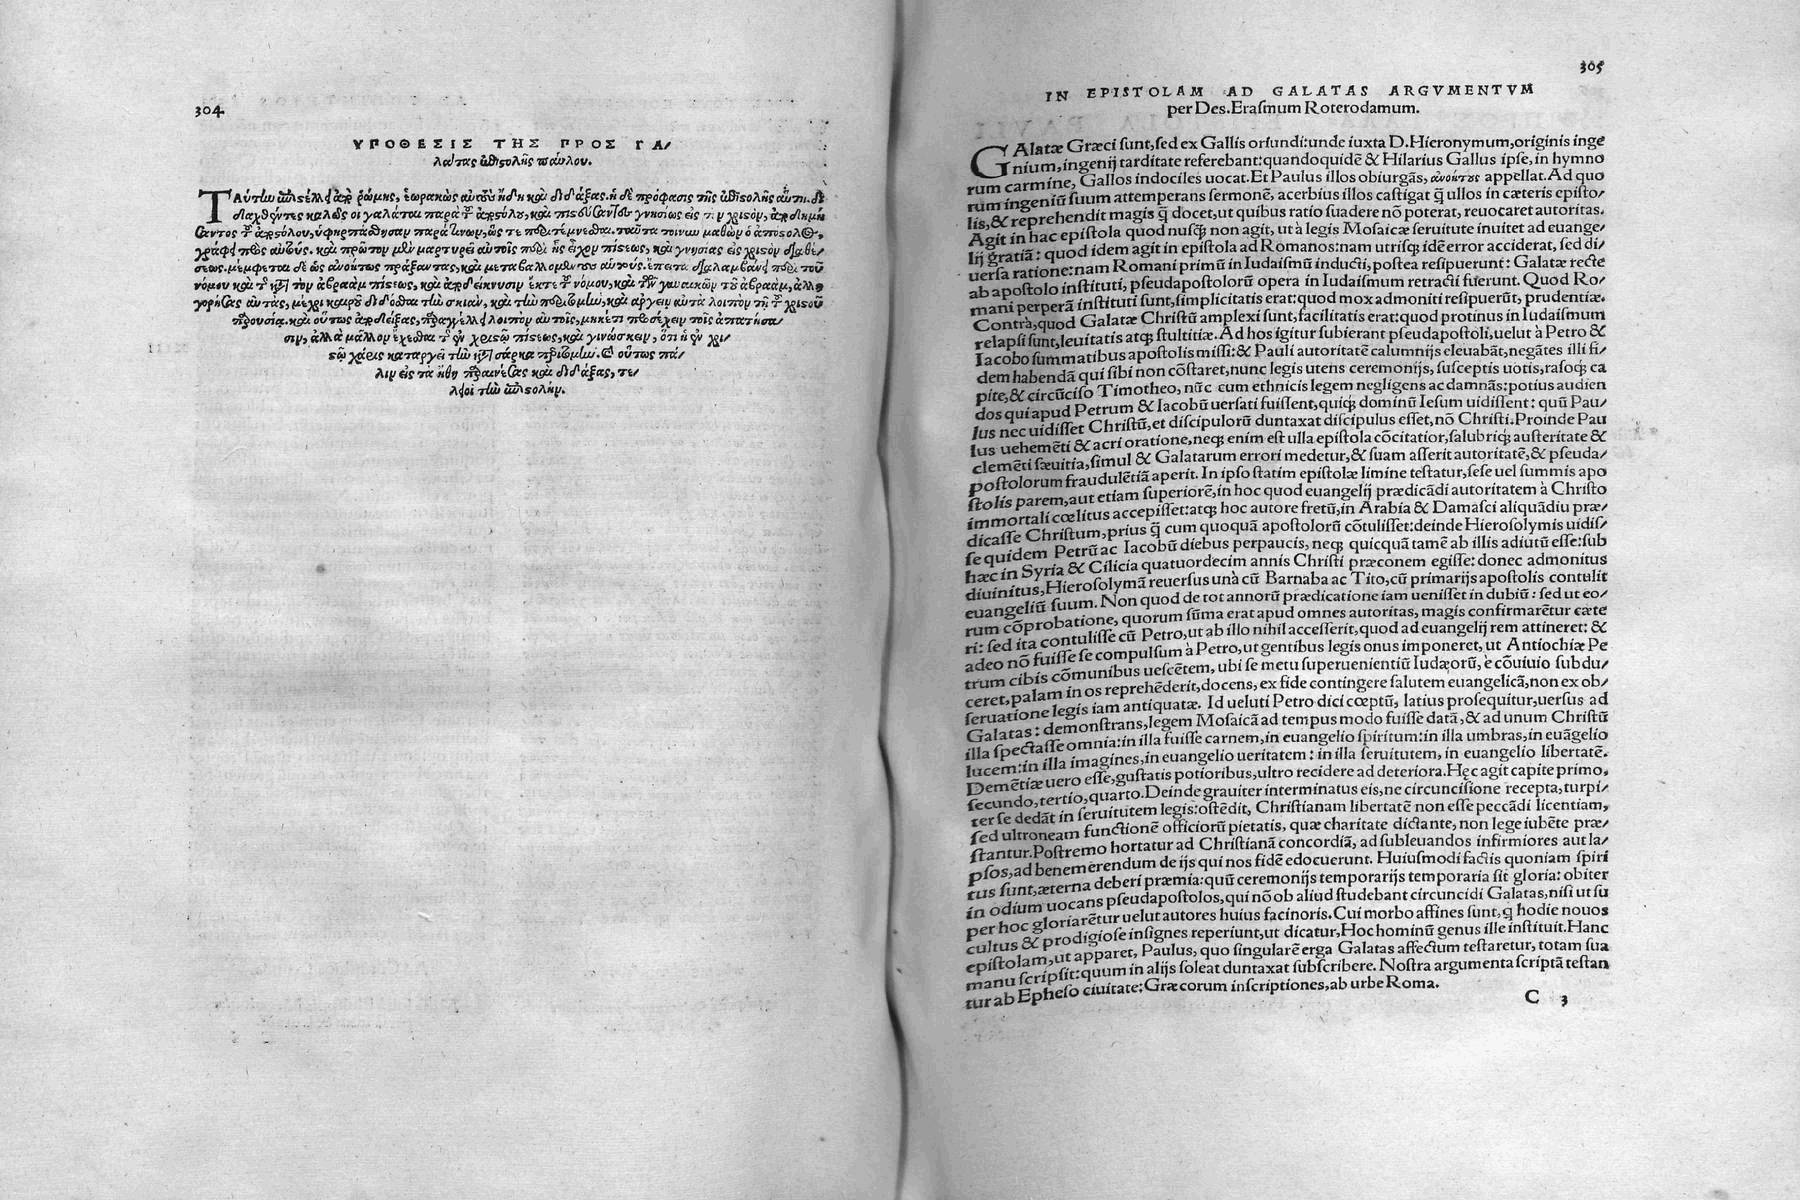 304
ΥΠΟΘΕΣΙΣ ΤΗΣ ΠΡΟΣ ΓΑ/
λάτας ἐπιστολῆς παύλου.
Ταύτην ἐπιστέλλει ἀπὸ ῥώμης, ἑωρακὼς αὐτοὺς ἤδη καὶ διδάξας. ἡ δὲ πρόφασις τῆς ἐπιστολῆς αὕτη. δι
δαχθέντες καλῶς οἱ γαλάται παρὰ τοῦ ἀποστόλου, καὶ πιστεύσαντες γνησίως εἰς τὸν χριστὸν,
γράφει πρὸς αὐτούς. καὶ πρῶτον μὲν μαρτυρεῖ αὐτοῖς περὶ ἧς εἶχον πίστεως, καὶ γνησίας εἰς χριστὸν διαθέ/
σεως. μέμφεται δὲ ὡς ἀνοήτως πράξαντας, καὶ μεταβαλλομένους αὐτούς. ἔπειτα διαλαμβάνει περὶ τοῦ
νόμου καὶ τῆς κατὰ τὸν ἀβραὰμ πίστεως, καὶ ἀποδείκνυσιν ἐκ τε τοῦ νόμου, καὶ τῶν γυναικῶν τοῦ ἀβραὰμ, ἀλλη
γορήσας αὐτὰς, μέχρι καιροῦ δίδοσθαι τὴν σκιὰν, καὶ τὴν περιτομὴν, καὶ ἀργεῖν αὐτὰ λοιπὸν τῇ τοῦ χριστοῦ
παρουσίᾳ. καὶ οὕτως ἀποδείξας, παραγγέλλει λοιπὸν αὐτοῖς, μηκέτι προσέχειν τοῖς ἀπατῆσα/
σιν, ἀλλὰ μᾶλλον ἔχεσθαι τῆς ἐν χριστῷ πίστεως, καὶ γινώσκειν, ὅτι ἡ ἐν χρι/
στῷ χάρις καταργεῖ τὴν κατὰ σάρκα περιτομήν. καὶ οὕτως πά/
λιν εἰς τὰ ἤθη παραινέσας καὶ διδάξας, τε/
λειοῖ τὴν ἐπιστολήν.
305
IN EPISTOLAM AD GALATAS ARGVMENTVM
per Des. Erasmum Roterodamum.
GAlatæ Græci sunt, sed ex Gallis oriundi: unde iuxta D. Hieronymum, originis inge
nium, ingenij tarditate referebant: quandoquidē & Hilarius Gallus ipse, in hymno
rum carmine, Gallos indociles uocat. Et Paulus illos obiurgās, ἀνοήτους appellat. Ad quo
rum ingeniū suum attemperans sermonē, acerbius illos castigat q̄ ullos in cæteris episto/
lis, & reprehendit magis q̄ docet, ut quibus ratio suadere nō poterat, reuocaret autoritas.
Agit in hac epistola quod nusq̄ non agit, ut à legis Mosaicæ seruitute inuitet ad euange/
lij gratiā: quod idem agit in epistola ad Romanos: nam utrisq; idē error acciderat, sed di/
uersa ratione: nam Romani primū in Iudaismū inducti, postea resipuerunt: Galatæ recte
ab apostolo instituti, pseudapostolorū opera in Iudaismum retracti fuerunt. Quod Ro/
mani perperā instituti sunt, simplicitatis erat: quod mox admoniti resipuerūt, prudentiæ.
Contrà, quod Galatæ Christū amplexi sunt, facilitatis erat: quod protinus in Iudaismum
relapsi sunt, leuitatis atq; stultitiæ. Ad hos igitur subierant pseudapostoli, uelut à Petro &
Iacobo summatibus apostolis missi: & Pauli autoritatē calumnijs eleuabāt, negātes illi fi/
dem habendā qui sibi non cōstaret, nunc legis utens ceremonijs, susceptis uotis, rasoq; ca
pite, & circūciso Timotheo, nūc cum ethnicis legem negligens ac damnās: potius audien
dos qui apud Petrum & Iacobū uersati fuissent, quiq; dominū Iesum uidissent: quū Pau/
lus nec uidisset Christū, et discipulorū duntaxat discipulus esset, nō Christi. Proinde Pau
lus uehemēti & acri oratione, neq; enim est ulla epistola cōcitatior, salubriq; austeritate &
clemēti sæuitia, simul & Galatarum errori medetur, & suam asserit autoritatē, & pseuda/
postolorum fraudulētiā aperit. In ipso statim epistolæ limine testatur, sese uel summis apo
stolis parem, aut etiam superiorē, in hoc quod euangelij prædicādi autoritatem à Christo
immortali cœlitus accepisset: atq; hoc autore fretū, in Arabia & Damasci aliquādiu præ/
dicasse Christum, prius q̄ cum quoquā apostolorū cōtulisset: deinde Hierosolymis uidis/
se quidem Petrū ac Iacobū diebus perpaucis, neq; quicquā tamē ab illis adiutū esse: sub
hæc in Syria & Cilicia quatuordecim annis Christi præconem egisse: donec admonitus
diuinitus, Hierosolymā reuersus unà cū Barnaba ac Tito, cū primarijs apostolis contulit
euangeliū suum. Non quod de tot annorū prædicatione iam uenisset in dubiū: sed ut eo/
rum cōprobatione, quorum sūma erat apud omnes autoritas, magis confirmarētur cæte
ri: sed ita contulisse cū Petro, ut ab illo nihil accesserit, quod ad euangelij rem attineret: &
adeo nō fuisse se compulsum à Petro, ut gentibus legis onus imponeret, ut Antiochiæ Pe
trum cibis cōmunibus uescētem, ubi se metu superuenientiū Iudæorū, è cōuiuio subdu/
ceret, palam in os reprehēderit, docens, ex fide contingere salutem euangelicā, non ex ob/
seruatione legis iam antiquatæ. Id ueluti Petro dici cœptū, latius prosequitur, uersus ad
Galatas: demonstrans, legem Mosaicā ad tempus modo fuisse datā, & ad unum Christū
illa spectasse omnia: in illa fuisse carnem, in euangelio spiritum: in illa umbras, in euāgelio
lucem: in illa imagines, in euangelio ueritatem: in illa seruitutem, in euangelio libertatē.
Demētiæ uero esse, gustatis potioribus, ultro recidere ad deteriora. Hęc agit capite primo,
secundo, tertio, quarto. Deinde grauiter interminatus eis, ne circuncisione recepta, turpi/
ter se dedāt in seruitutem legis: ostēdit, Christianam libertatē non esse peccādi licentiam,
sed ultroneam functionē officiorū pietatis, quæ charitate dictante, non lege iubēte præ/
stantur. Postremo hortatur ad Christianā concordiā, ad subleuandos infirmiores aut la/
psos, ad benemerendum de ijs qui nos fidē edocuerunt. Huiusmodi factis quoniam spiri
tus sunt, æterna deberi præmia: quū ceremonijs temporarijs temporaria sit gloria: obiter
in odium uocans pseudapostolos, qui nō ob aliud studebant circuncidi Galatas, nisi ut su
per hoc gloriarētur uelut autores huius facinoris. Cui morbo affines sunt, q hodie nouos
cultus & prodigiose insignes reperiunt, ut dicatur, Hoc hominū genus ille instituit. Hanc
epistolam, ut apparet, Paulus, quo singularē erga Galatas affectum testaretur, totam sua
manu scripsit: quum in alijs soleat duntaxat subscribere. Nostra argumenta scriptā testan
tur ab Epheso ciuitate: Græcorum inscriptiones, ab urbe Roma.
C 3